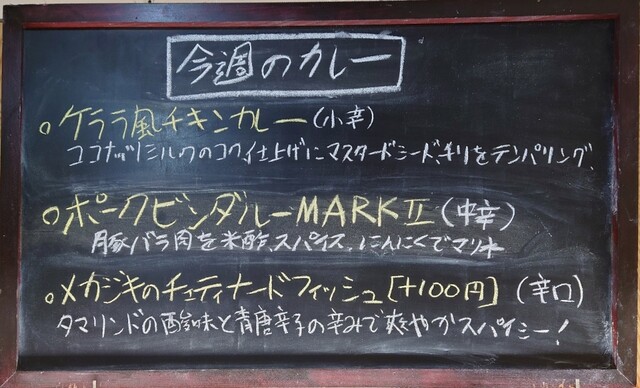 今週のカレー
。ケララ風チキンカレー(小辛)
ココナッツミルクのコク、仕上げにマスタードシード、ギーをテンパリング、
。ポークビンダルーMARKⅡ(中辛)
豚バラ肉を米酢、スパイス、にんにくでマリネ
。メカジキのチェティナードフィッシュ[+100円](辛口)
タマリンドの酸味と青唐辛子の辛みで爽やかスパイシー!